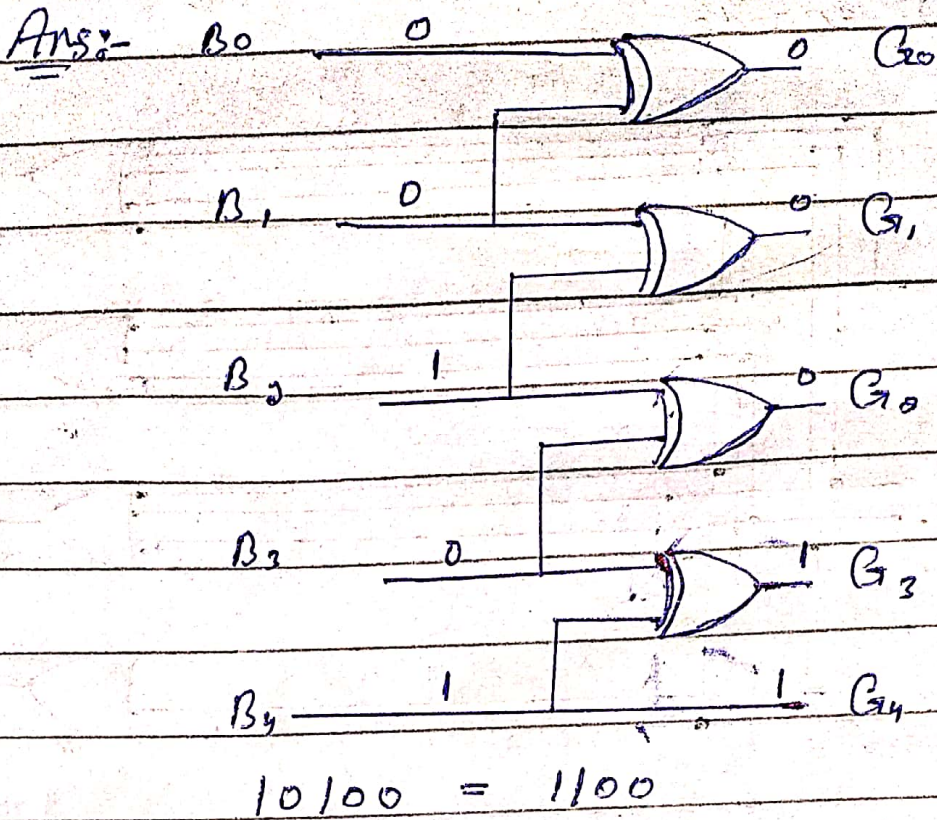 Ans:- B0 0 0 G0
B1 0 0 G1
B2 1 0 G2
B3 0 1 G3
B4 1 1 G4
10100 = 1100